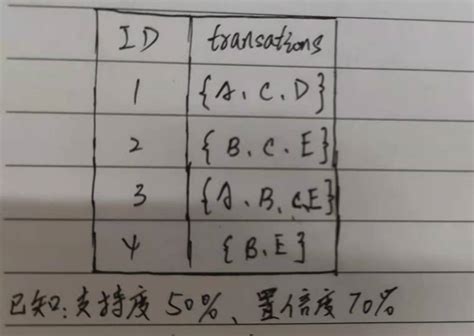 ID transations
1 {A、C、D}
2 {B、C、E}
3 {A、B、C、E}
4 {B、E}
已知:支持度50%、置信度70%